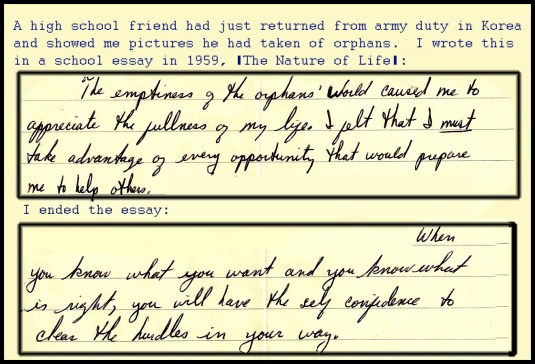 A high school friend had just returned from army duty in Korea
and showed me pictures he had taken of orphans.  I wrote this
in a school essay in 1959, ▌The Nature of Life▌:
The emptiness of the orphans' world caused me to
appreciate the fullness of my life. I felt that I must
take advantage of every opportunity that would prepare
me to help others.
I ended the essay:
When
you know what you want and you know what
is right, you will have the self confidence to
clear the hurdles in your way.